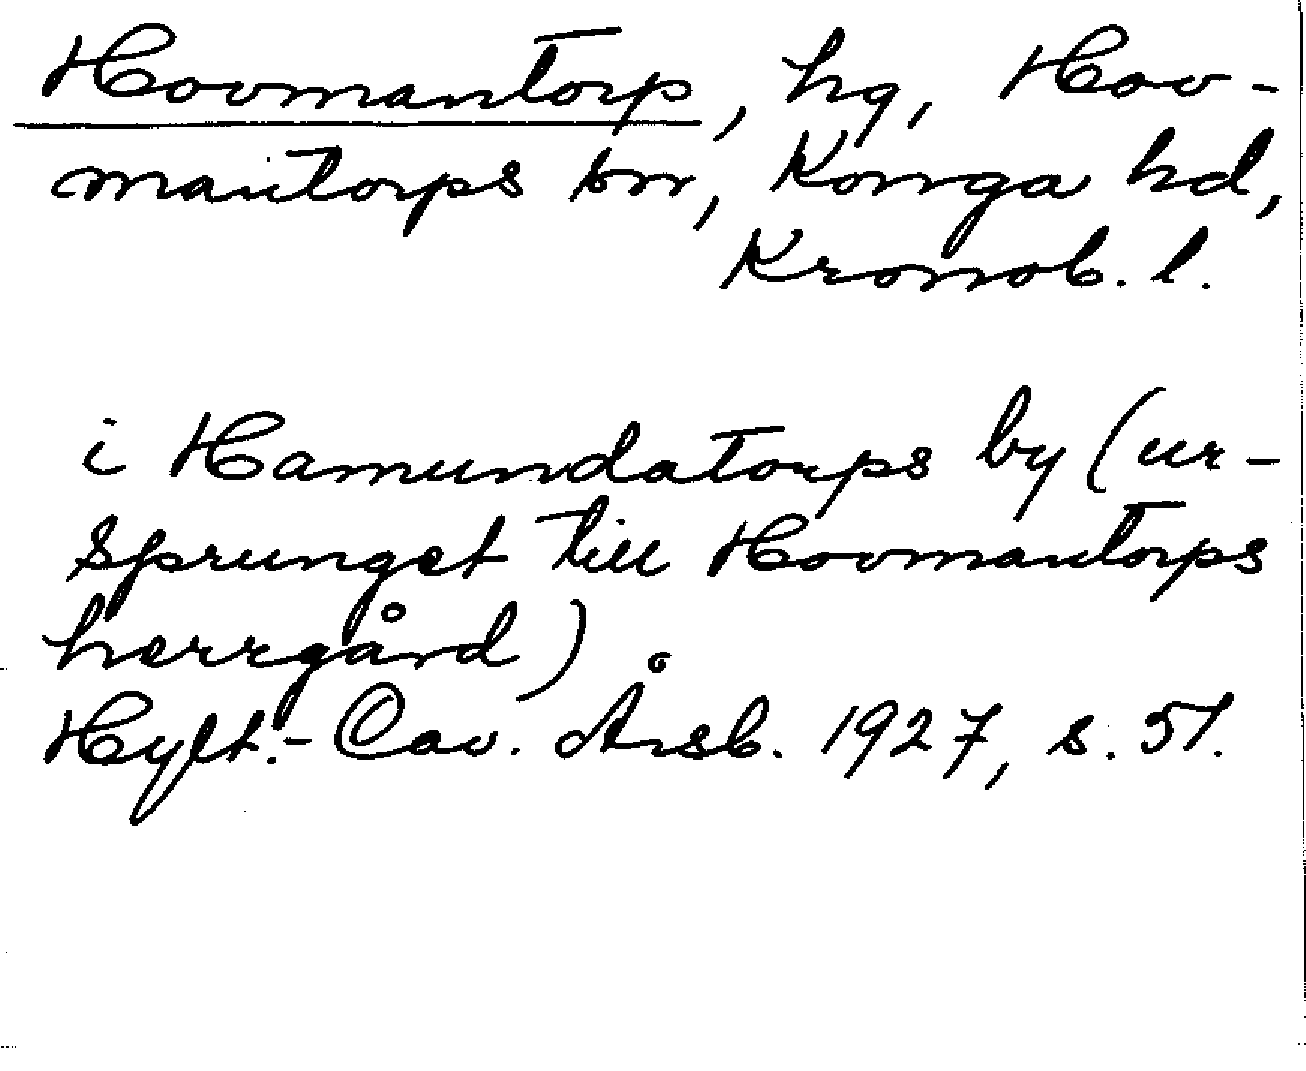 Hovmantorp, hg, Hov-
mantorps sn, Konga hd,
Kronob. l.
i Hamundatorps by (ur-
sprunget till Hovmantorps
herrgård)
Hylt.-Cav. Årsb. 1927, s. 51.